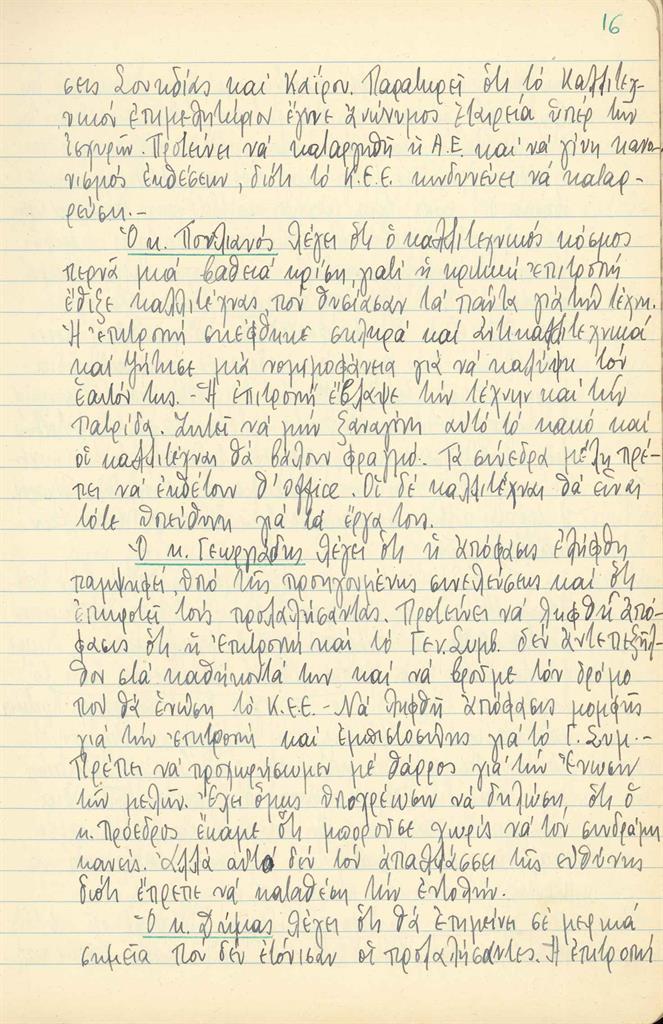 16
σεις Σουηδίας καί Καΐρου. Παρατηρεῖ ὅτι τό Καλλιτεχ-
νικόν ἐπιμελητήριον ἔγινε Ἀνώνυμος Ἑταιρεία ὑπέρ τῶν
ἰσχυρῶν. Προτείνει νά καταργηθῆ ἡ Α.Ε. καί νά γίνη κανο-
νισμός ἐκθέσεων, διότι τό Κ.Ε.Ε. κινδυνεύει νά καταρ-
ρεύση.-
Ὁ κ. Πουλιανός λέγει ὅτι ὁ καλλιτεχνικός κόσμος
περνᾶ μιά βαθειά κρίση, γιατί ἡ κριτική ἐπιτροπή
ἔθιξε καλλιτέχνας, πού θυσίασαν τά πάντα γιά τήν τέχνη.
Ἡ ἐπιτροπή σκέφθηκε σκληρά καί ἀντικαλλιτεχνικά
καί ζήτησε μιά νομιμοφάνεια γιά νά καλύψη τόν
ἑαυτόν της.- Ἡ ἐπιτροπή ἔβλαψε τήν τέχνην καί τήν
πατρίδα. Ζητεῖ νά μήν ξαναγίνη αὐτό τό κακό καί
οἱ καλλιτέχναι θά βάλουν φραγμό. Τά σύνεδρα μέλη πρέ-
πει νά ἐκθέτουν d'office. Οἱ δέ καλλιτέχναι θά εἶναι
τότε ὑπεύθυνοι γιά τά ἔργα τους.
Ὁ κ. Γεωργιάδης λέγει ὅτι ἡ ἀπόφασις ἐλήφθη
παμψηφεί, ὑπό τῆς προηγουμένης συνελεύσεως καί ὅτι
ἐπικροτεῖ τούς προλαλήσαντας. Προτείνει νά ληφθῆ ἀπό-
φασις ὅτι ἡ Ἐπιτροπή καί τό Γεν. Συμβ. δέν ἀντεπεξῆλ-
θον στά καθήκοντά των καί νά βροῦμε τόν δρόμο
πού θά ἑνώση τό Κ.Ε.Ε.- Νά ληφθῆ ἀπόφασις μομφῆς
γιά τήν ἐπιτροπή καί ἐμπιστοσύνης γιά τό Γ. Συμ.-
Πρέπει νά προχωρήσωμεν μέ θάρρος γιά τήν Ἕνωσιν
τῶν μελῶν. Ἔχει ὅμως ὑποχρέωσιν νά δηλώση, ὅτι ὁ
κ. Πρόεδρος ἔκαμε ὅ,τι μποροῦσε χωρίς νά τόν συνδράμη
κανείς. Ἀλλά αὐτό δέν τόν ἀπαλλάσσει τῆς εὐθύνης
διότι ἔπρεπε νά καταθέση τήν ἐντολήν.
Ὁ κ. Δήμας λέγει ὅτι θά ἐπιμείνει σέ μερικά
σημεῖα πού δέν ἐτόνισαν οἱ προλαλήσαντες. Ἡ ἐπιτροπή